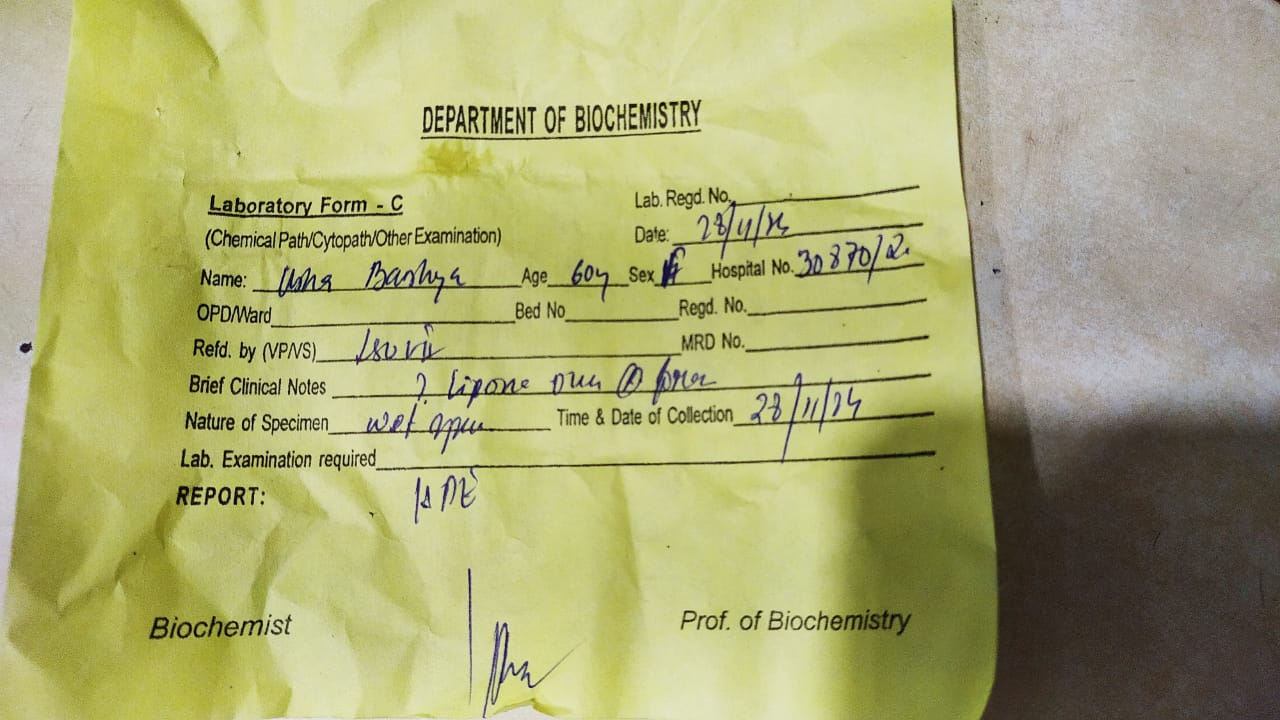 DEPARTMENT OF BIOCHEMISTRY
Laboratory Form - C
Lab. Regd. No.
(Chemical Path/Cytopath/Other Examination)
Date: 28/11/24
Name: Age 60y Sex F Hospital No. 30870/2
OPD/Ward Bed No Regd. No.
Refd. by (VP/VS) MRD No.
Brief Clinical Notes ?
Nature of Specimen wet Time & Date of Collection 28/11/24
Lab. Examination required
REPORT: HPE
Biochemist Prof. of Biochemistry